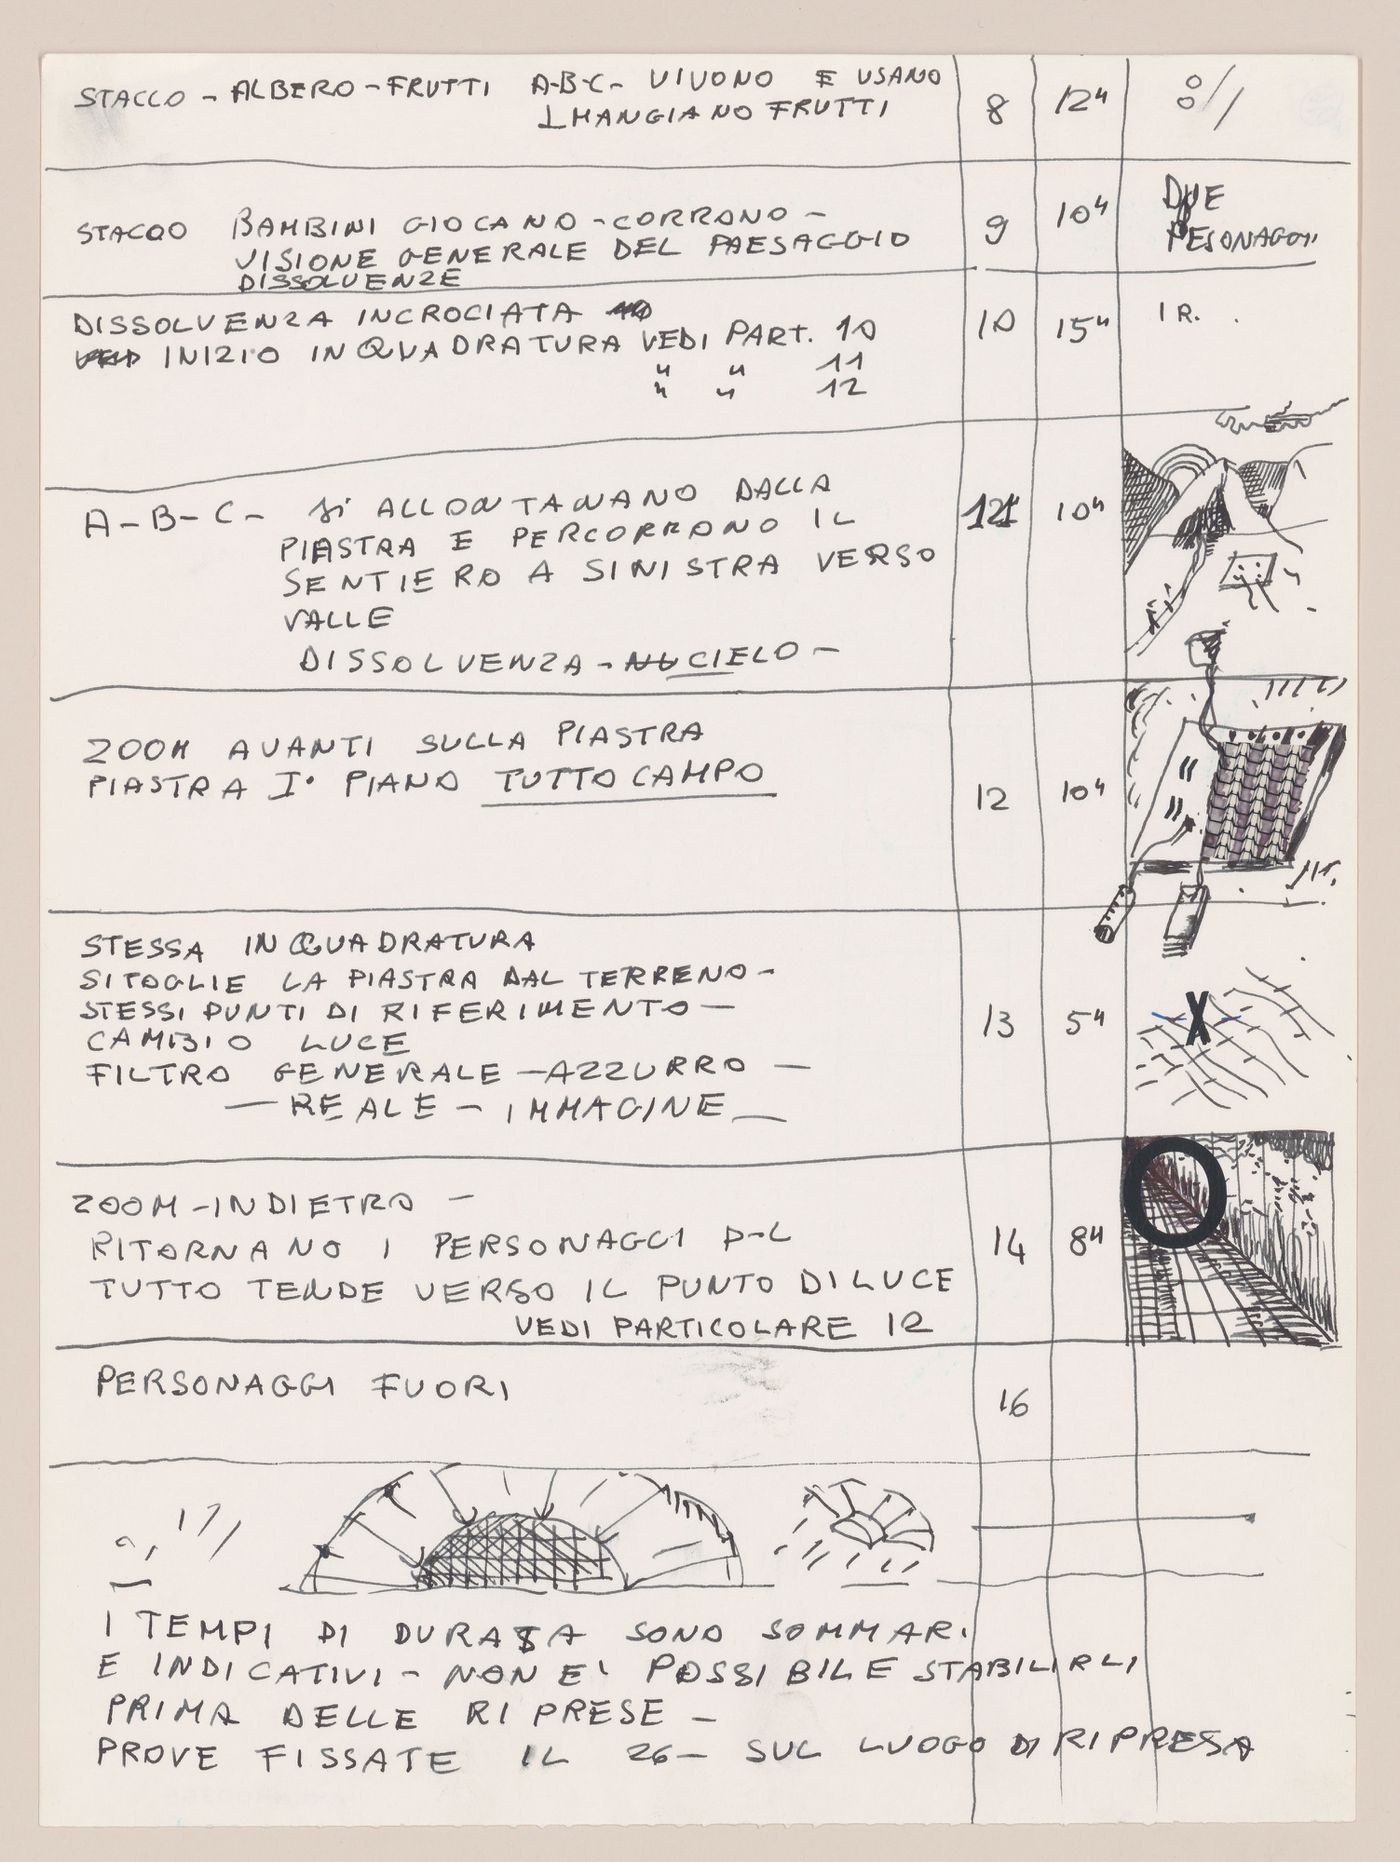 STACCO - ALBERO - FRUTTI A-B-C- VIVONO E USANO 8 12"
MANGIANO FRUTTI
STACCO BAMBINI GIOCANO - CORRONO - 9 10" DUE
VISIONE GENERALE DEL PAESAGGIO PESONAGGI
DISSOLVENZE
DISSOLVENZA INCROCIATA 10 15" 1 R.
INIZIO INQUADRATURA VEDI PART. 10
" " 11
" " 12
A-B-C- Si ALLONTANANO DALLA 11 10"
PIASTRA E PERCORRONO IL
SENTIERO A SINISTRA VERSO
VALLE
DISSOLVENZA - CIELO -
ZOOM AVANTI SULLA PIASTRA
PIASTRA I° PIANO TUTTO CAMPO 12 10"
STESSA INQUADRATURA
SI TOGLIE LA PIASTRA DAL TERRENO -
STESSI PUNTI DI RIFERIMENTO - 13 5"
CAMBIO LUCE
FILTRO GENERALE - AZZURRO -
- REALE - IMMAGINE -
ZOOM - INDIETRO -
RITORNANO I PERSONAGGI 14 8"
TUTTO TENDE VERSO IL PUNTO DI LUCE
VEDI PARTICOLARE 12
PERSONAGGI FUORI 16
I TEMPI DI DURATA SONO SOMMARI
E INDICATIVI - NON E' POSSIBILE STABILIRLI
PRIMA DELLE RIPRESE -
PROVE FISSATE IL 26 - SUL LUOGO DI RIPRESA